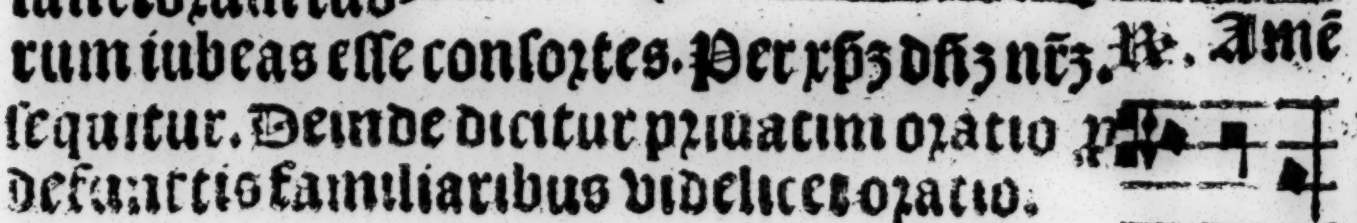 rum iubeas eſſe conſoꝛtes. Per xp̄ꝫ dn̄ꝫ nr̄ꝫ. ℟. Amē
ſequitur. Deinde dicitur pꝛiuatim oꝛatio
defunctis familiaribus videlicet oꝛatio.